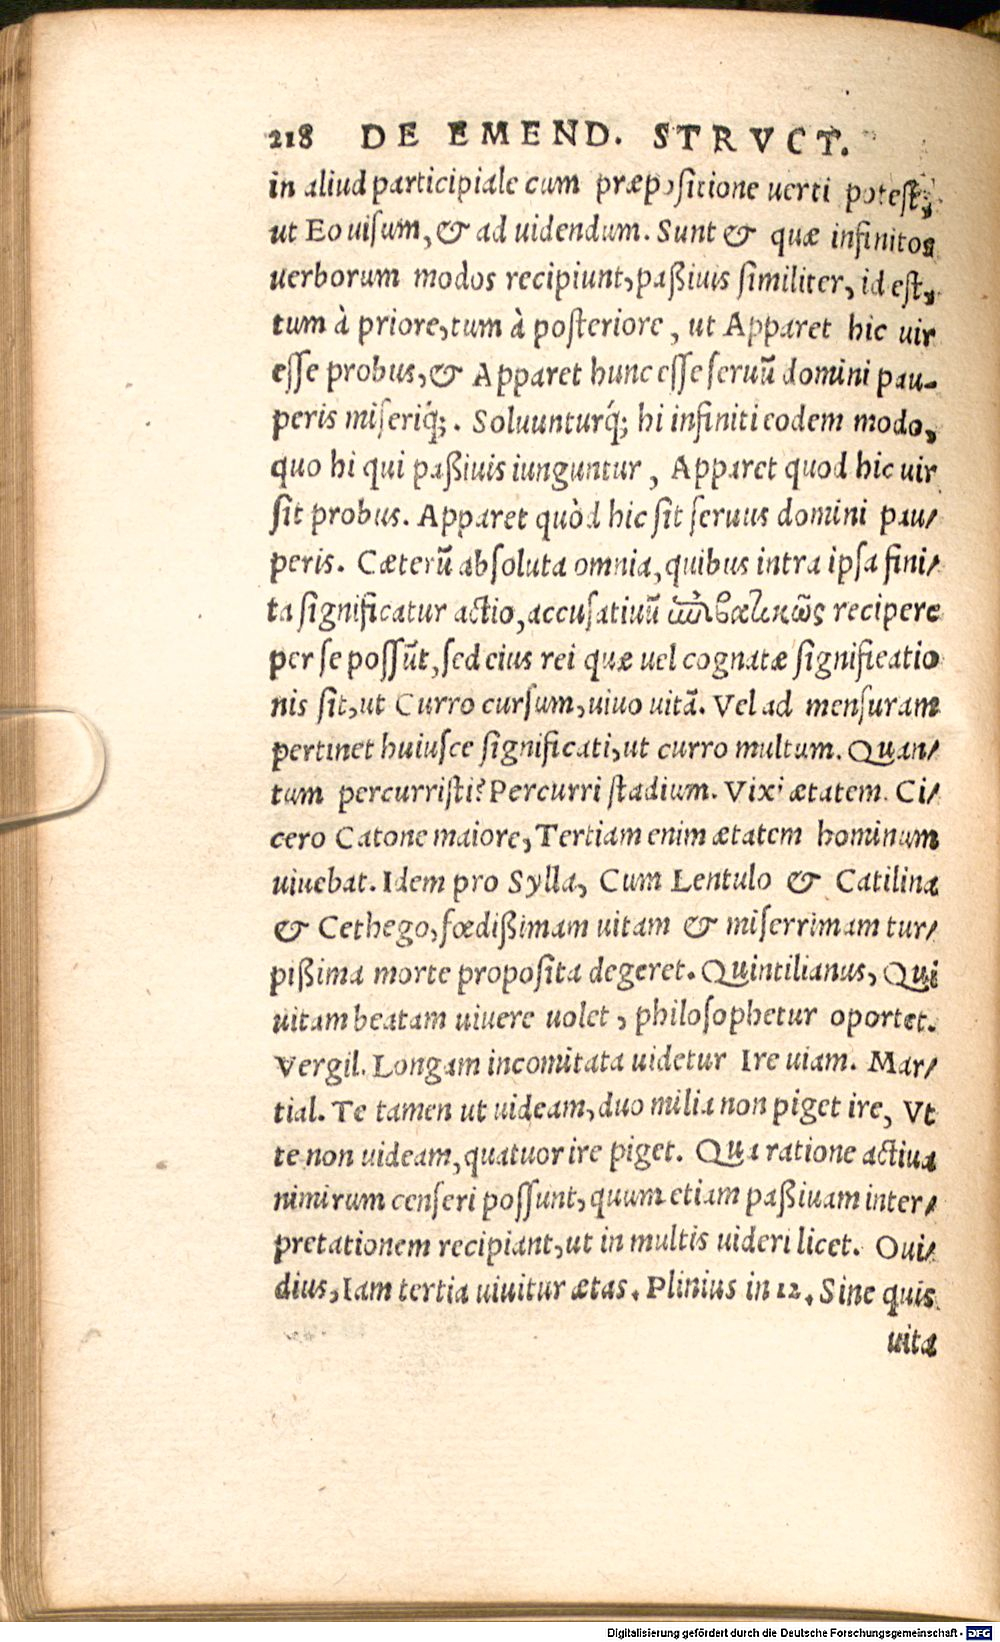 218 DE EMEND. STRVCT.
in aliud participiale cum præpositione uerti potest,
ut Eo uisum, & ad uidendum. Sunt & quæ infinitos
uerborum modos recipiunt, paßiuis similiter, id est,
tum à priore, tum à posteriore, ut Apparet hic uir
esse probus, & Apparet hunc esse seruũ domini pau-
peris miseriq́;. Soluunturq́; hi infiniti eodem modo,
quo hi qui paßiuis iunguntur, Apparet quod hic uir
sit probus. Apparet quòd hic sit seruus domini pau/
peris. Cæterũ absoluta omnia, quibus intra ipsa fini/
ta significatur actio, accusatiuũ recipere
per se possũt, sed eius rei quæ uel cognatæ significatio
nis sit, ut Curro cursum, uiuo uitã. Vel ad mensuram
pertinet huiusce significati, ut curro multum. Quan/
tum percurristi? Percurri stadium. Vixi ætatem. Ci/
cero Catone maiore, Tertiam enim ætatem hominum
uiuebat. Idem pro Sylla, Cum Lentulo & Catilina
& Cethego, fœdißimam uitam & miserrimam tur/
pißima morte proposita degeret. Quintilianus, Qui
uitam beatam uiuere uolet, philosophetur oportet.
Vergil. Longam incomitata uidetur Ire uiam. Mar/
tial. Te tamen ut uideam, duo milia non piget ire, Vt
te non uideam, quatuor ire piget. Qua ratione actiua
nimirum censeri possunt, quum etiam paßiuam inter/
pretationem recipiant, ut in multis uideri licet. Oui/
dius, Iam tertia uiuitur ætas. Plinius in 12. Sine quis
uita
Digitalisierung gefördert durch die Deutsche Forschungsgemeinschaft - DFG